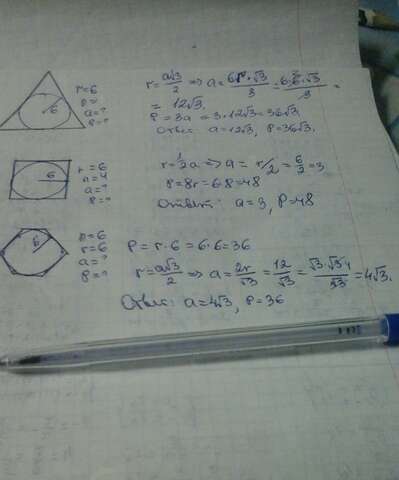 6
r=6
n=
a=?
P=?
r=a√3/2 ⇒ a=6r·√3/3=6·6·√3/3=
=12√3.
P=3a=3·12√3=36√3.
Ответ: a=12√3, P=36√3.
6
r=6
n=4
a=?
P=?
r=1/2a ⇒ a=r/2=6/2=3
P=8r=6·8=48
Ответ: a=3, P=48
6
n=6
r=6
a=?
P=?
P=r·6=6·6=36
r=a√3/2 ⇒ a=2r/√3=12/√3=√3·√3·4/√3=4√3.
Ответ: a=4√3, P=36